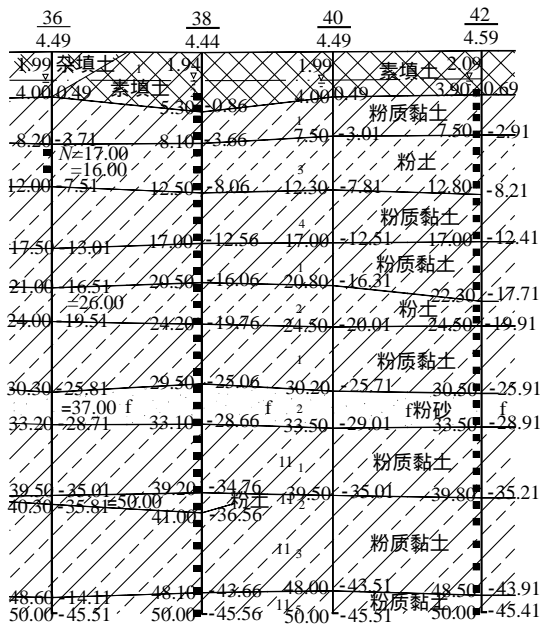 36 38 40 42
4.49 4.44 4.49 4.59
1.99 杂填土 1 1.94 1.99 2.09
素填土
4.00 0.49 素填土 4.00 0.49 3.90 0.69
5.30 -0.86 粉质黏土
1
8.20 -3.71 8.10 -3.66 7.50 -3.01 7.50 -2.91
N=17.00 粉土
=16.00 3
12.00 -7.51 12.50 -8.06 12.30 -7.81 12.80 -8.21
4 粉质黏土
17.50 -13.01 17.00 -12.56 17.00 -12.51 17.00 -12.41
1 粉质黏土
21.00 -16.51 20.50 -16.06 20.80 -16.31 22.30 -17.71
=26.00 2 粉土
24.00 -19.51 24.20 -19.76 24.50 -20.01 24.50 -19.91
1 粉质黏土
30.30 -25.81 29.50 -25.06 30.20 -25.71 30.50 -25.91
=37.00 f f 2 f粉砂 f
33.20 -28.71 33.10 -28.66 33.50 -29.01 33.50 -28.91
11 1 粉质黏土
39.50 -35.01 39.20 -34.76 39.50 -35.01 39.80 -35.21
40.30 -35.81 =50.00 粉土 11 2
41.00 -36.56
11 3 粉质黏土
48.60 -14.11 48.10 -43.66 48.00 -43.51 48.50 -43.91
粉质黏土
50.00 -45.51 50.00 -45.56 50.00 -45.51 50.00 -45.41